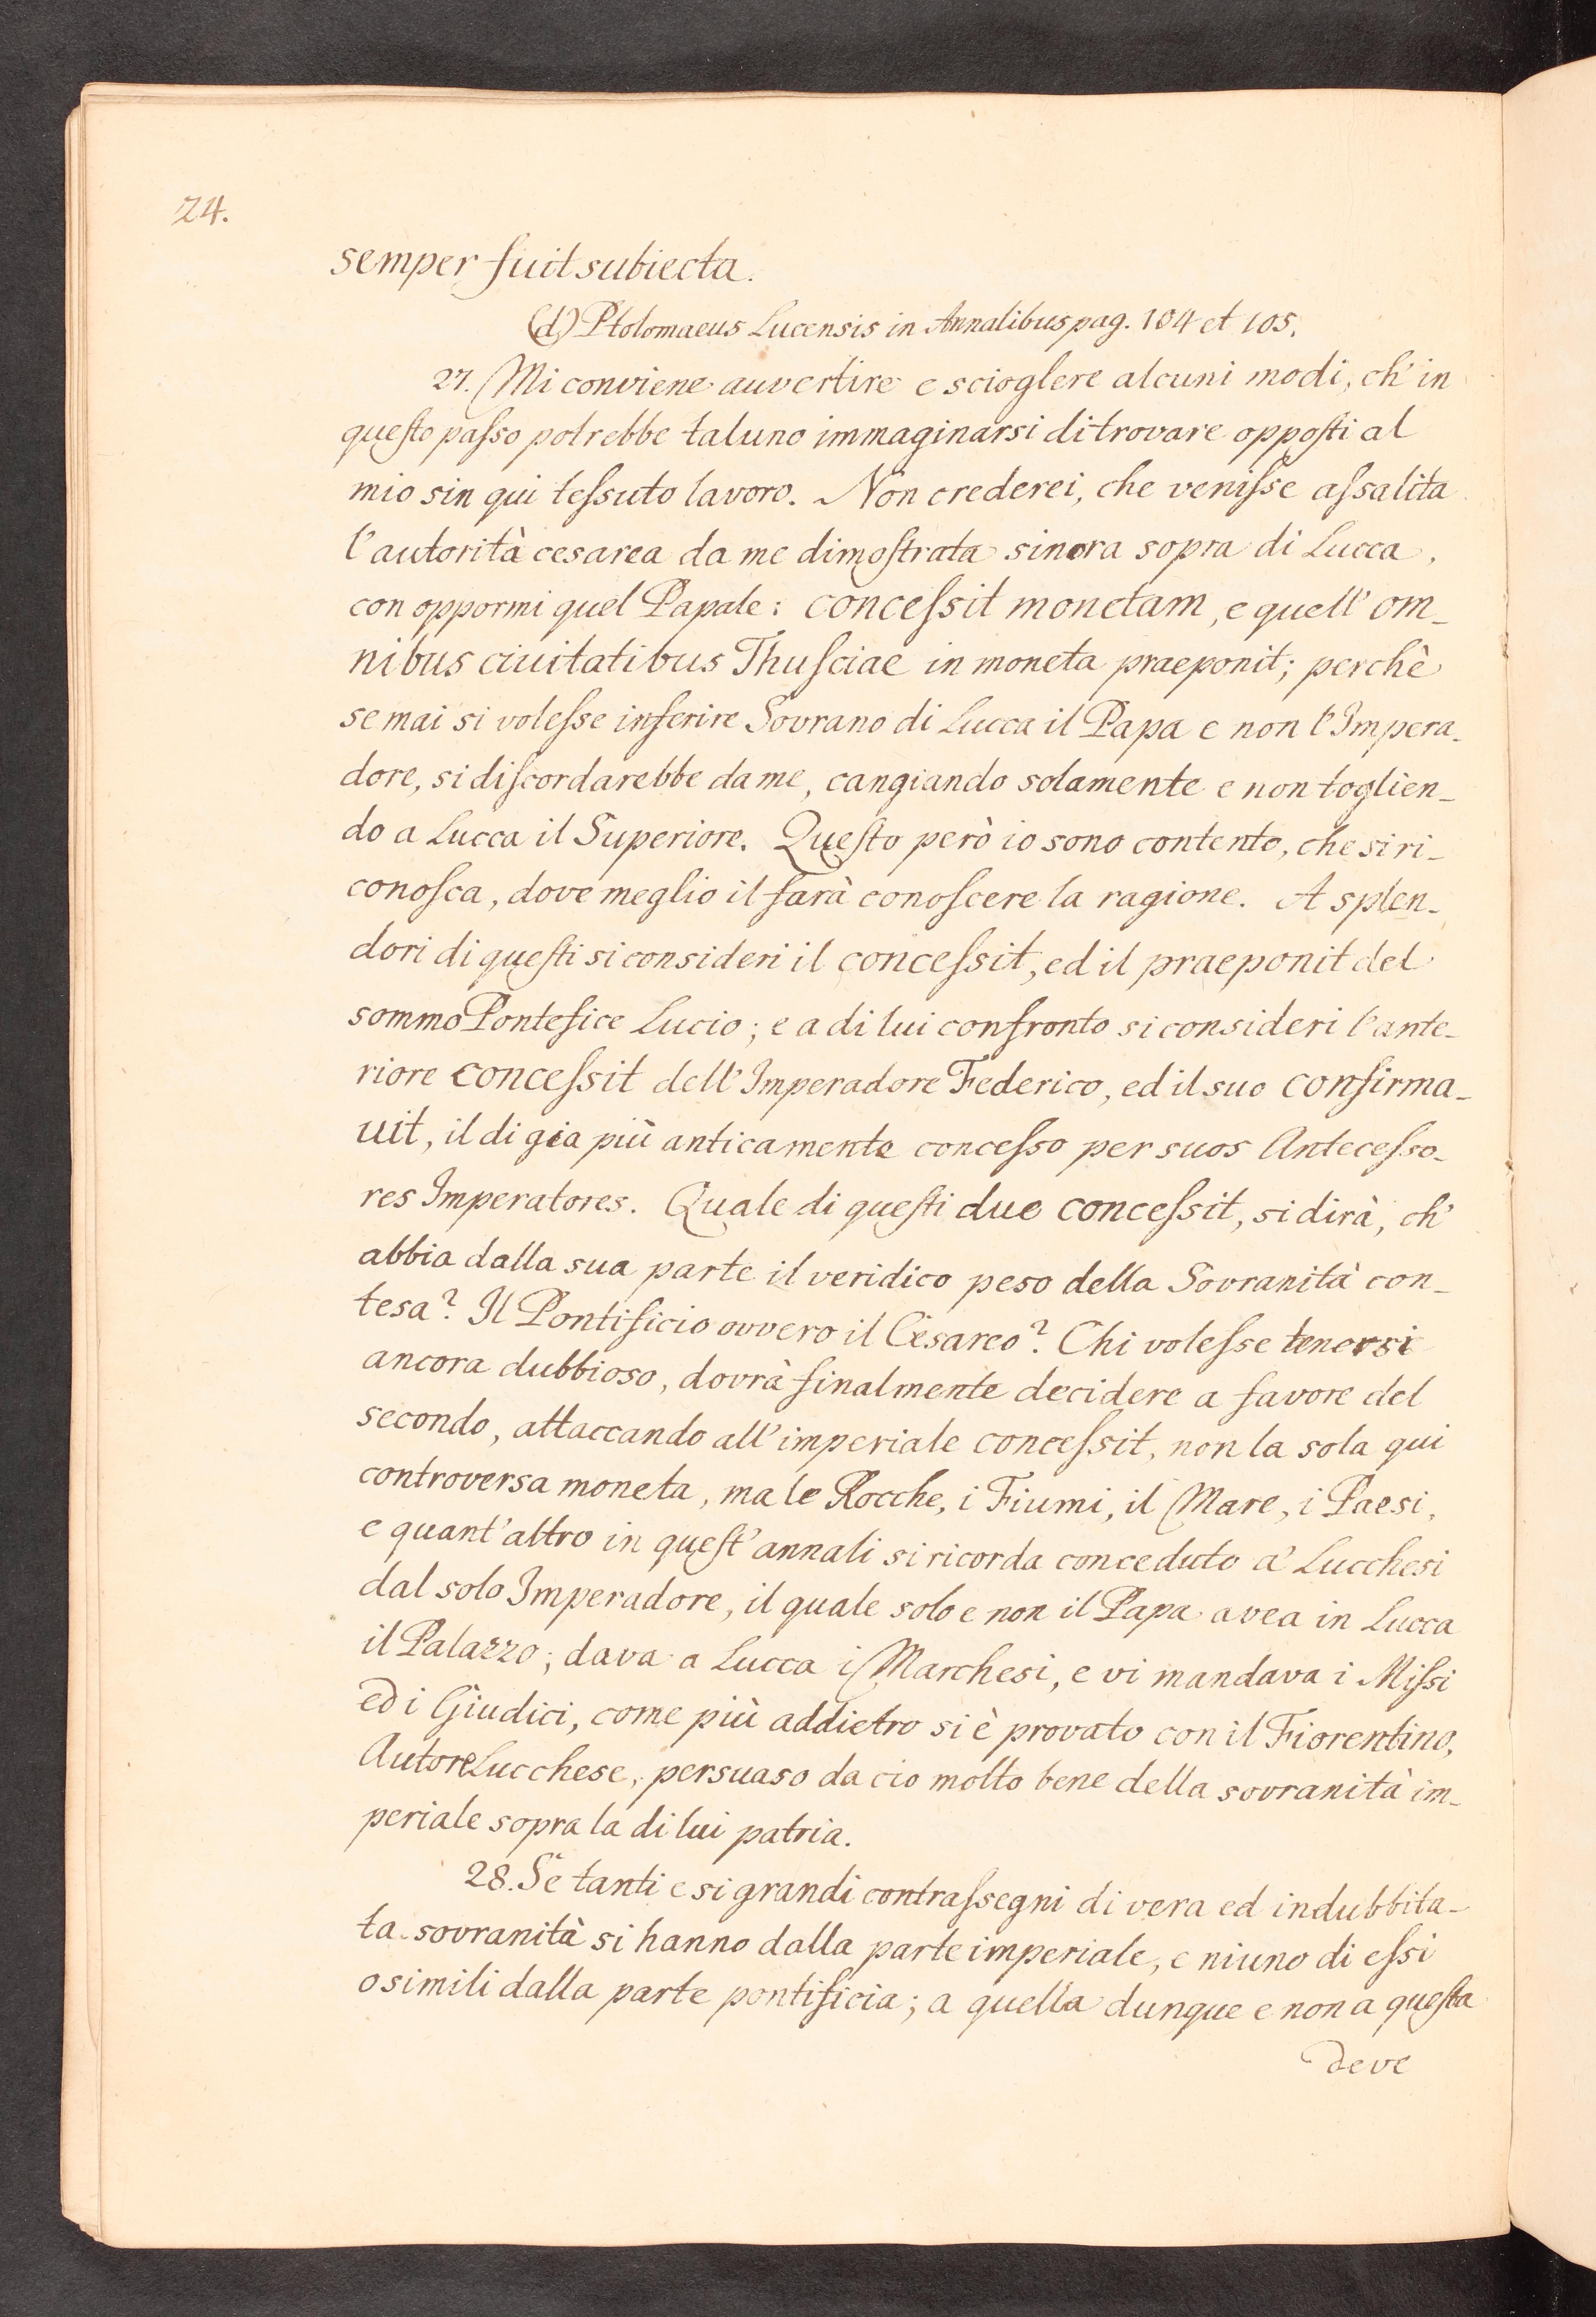 24.
semper fuit subiecta.
(d) Ptolomaeus Lucensis in Annalibus pag. 104 et 105.
27. Mi conviene auvertire e scioglere alcuni modi, ch' in
questo passo potrebbe taluno immaginarsi di trovare opposti al
mio sin qui tessuto lavoro. Non crederei, che venisse assalita
l'autorità cesarea da me dimostrata sinora sopra di Lucca,
con oppormi quel Papale: concessit monetam, e quell' om-
nibus ciuitatibus Thusciae in moneta praeponit; perchè
se mai si volesse inferire Sovrano di Lucca il Papa e non l'Impera-
dore, si discordarebbe da me, cangiando solamente e non toglien-
do a Lucca il Superiore. Questo però io sono contento, che si ri-
conosca, dove meglio il farà conoscere la ragione. A splen-
dori di questi si consideri il concessit, ed il praeponit del
sommo Pontefice Lucio; e a di lui confronto si consideri l'ante-
riore concessit dell'Imperadore Federico, ed il suo confirma-
uit, il di gia più anticamente concesso per suos Antecesso-
res Imperatores. Quale di questi due concessit, si dirà, ch'
abbia dalla sua parte il veridico peso della Sovranità con-
tesa? Il Pontificio ovvero il Cesareo? Chi volesse tenersi
ancora dubbioso, dovrà finalmente decidere a favore del
secondo, attaccando all'imperiale concessit, non la sola qui
controversa moneta, ma le Rocche, i Fiumi, il Mare, i Paesi,
e quant'altro in quest'annali si ricorda conceduto a' Lucchesi
dal solo Imperadore, il quale solo e non il Papa avea in Lucca
il Palazzo; dava a Lucca i Marchesi, e vi mandava i Missi
ed i Giudici, come più addietro si è provato con il Fiorentino,
Autore Lucchese, persuaso da cio molto bene della sovranità im-
periale sopra la di lui patria.
28. Se tanti e si grandi contrassegni di vera ed indubbita-
ta sovranità si hanno dalla parte imperiale, e niuno di essi
o simili dalla parte pontificia; a quella dunque e non a questa
deve